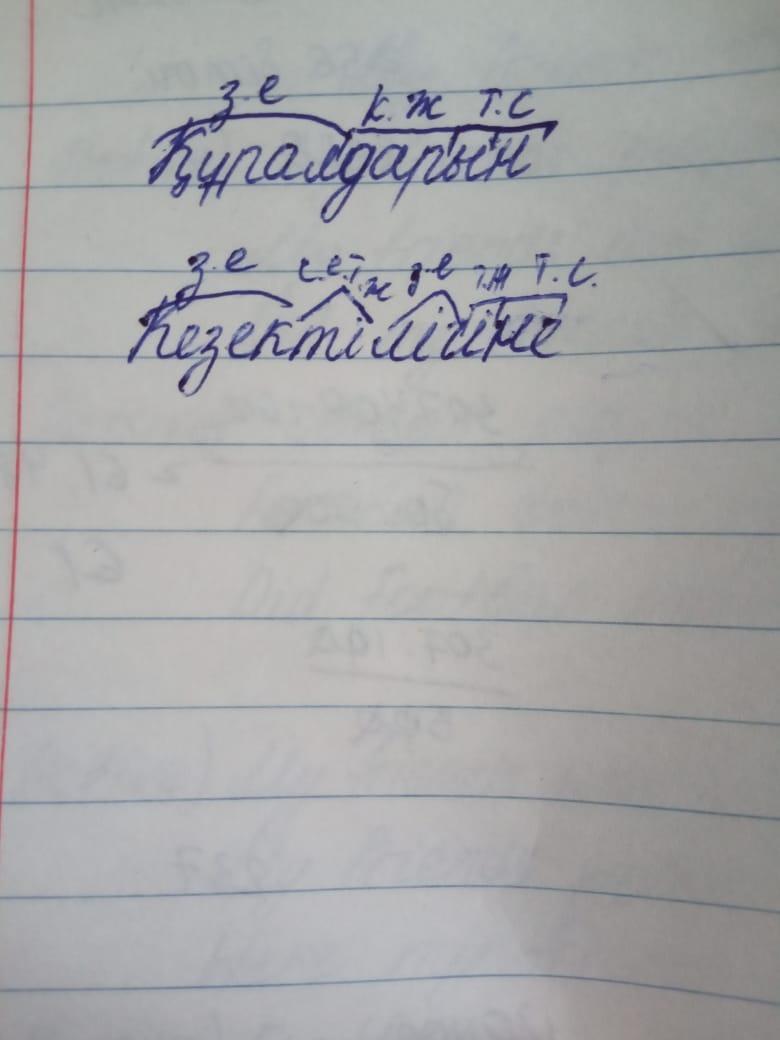 з.е к.ж т.с
Құралдарын
з.е с.е.т.ж з.е т.ж т.с.
Кезектілігіне